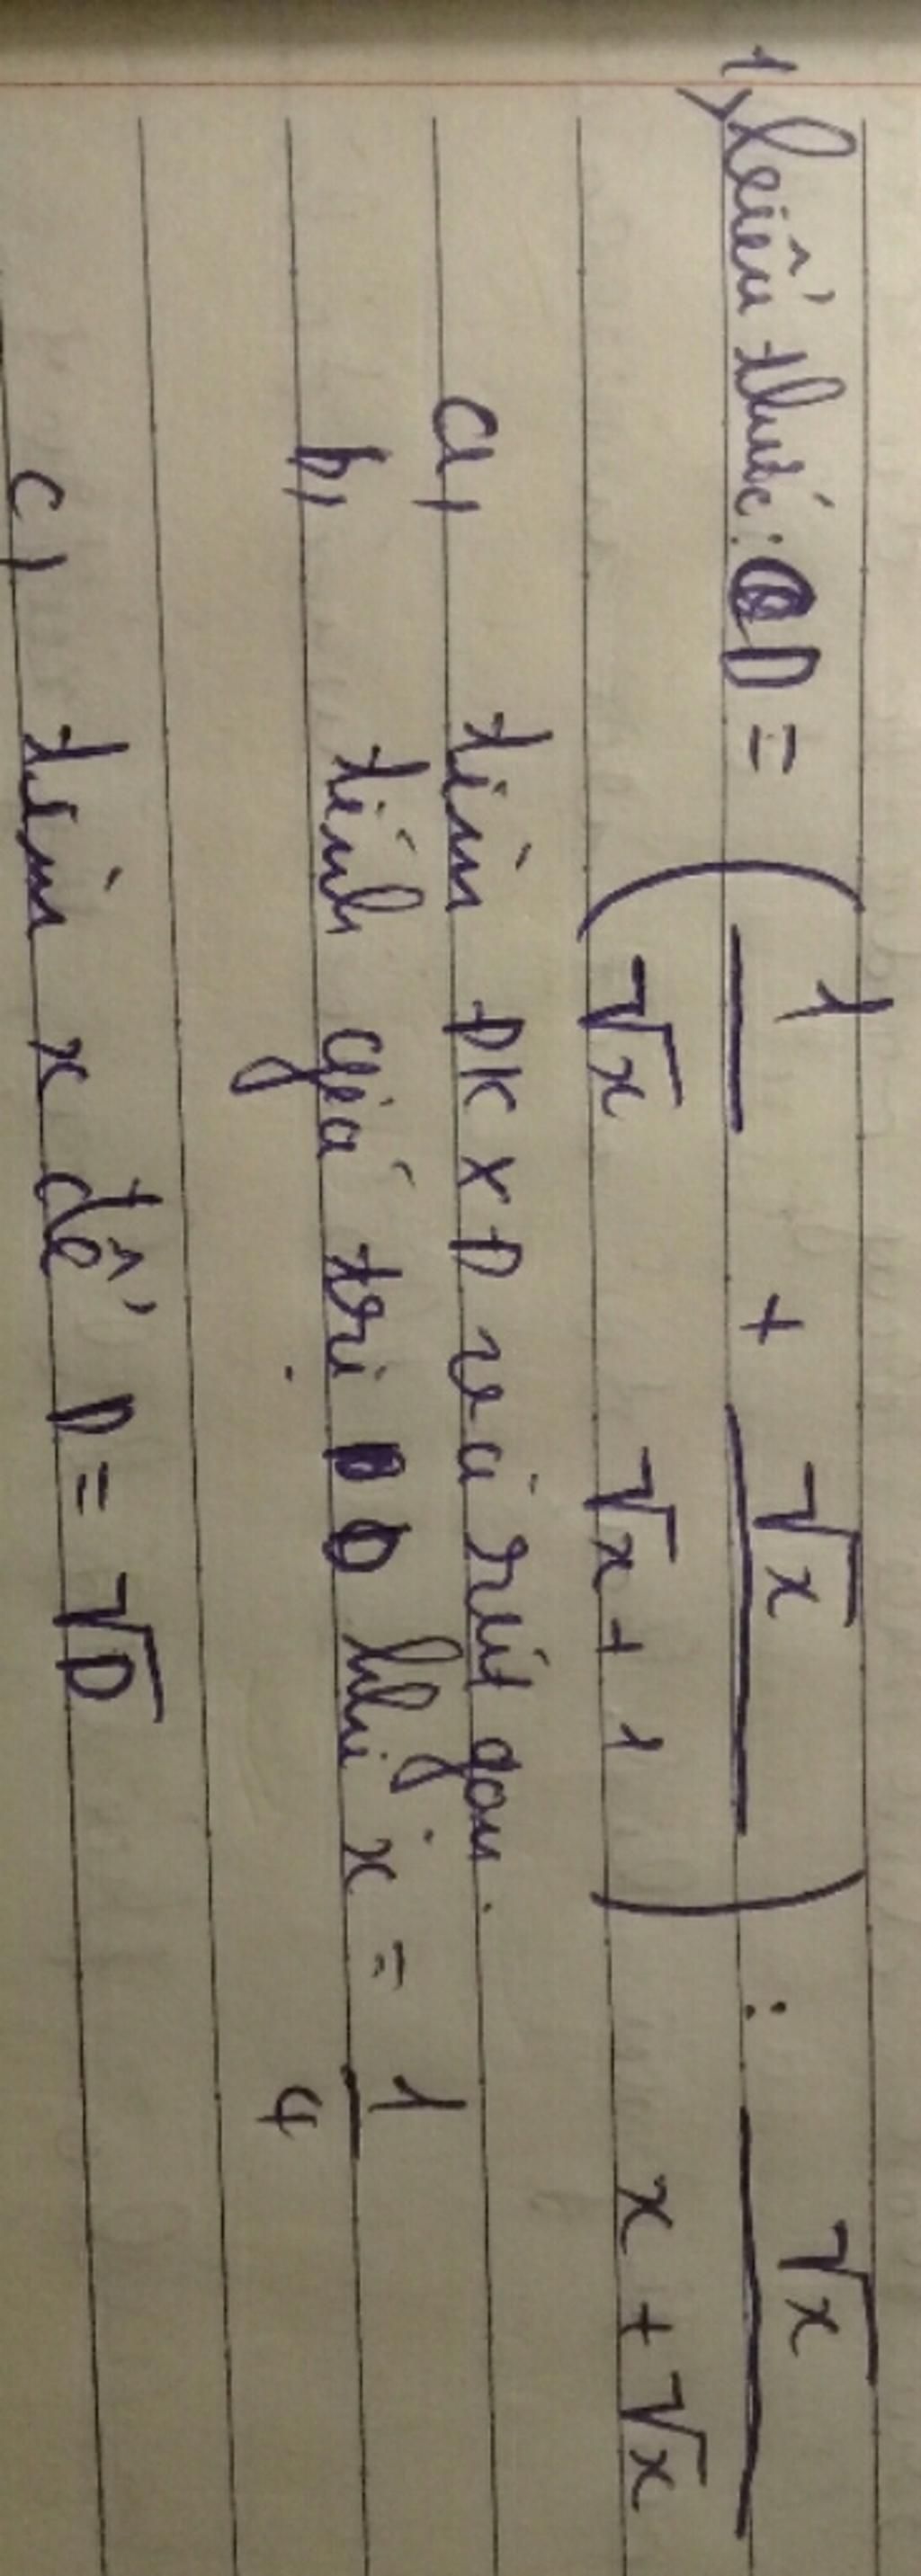 1, biểu thức: D = ( 1/√x + √x/√x + 1 ) : √x/x + √x
a, tìm ĐKXĐ và rút gọn.
b, tính giá trị D khi x = 1/4
c, tìm x để D = √D